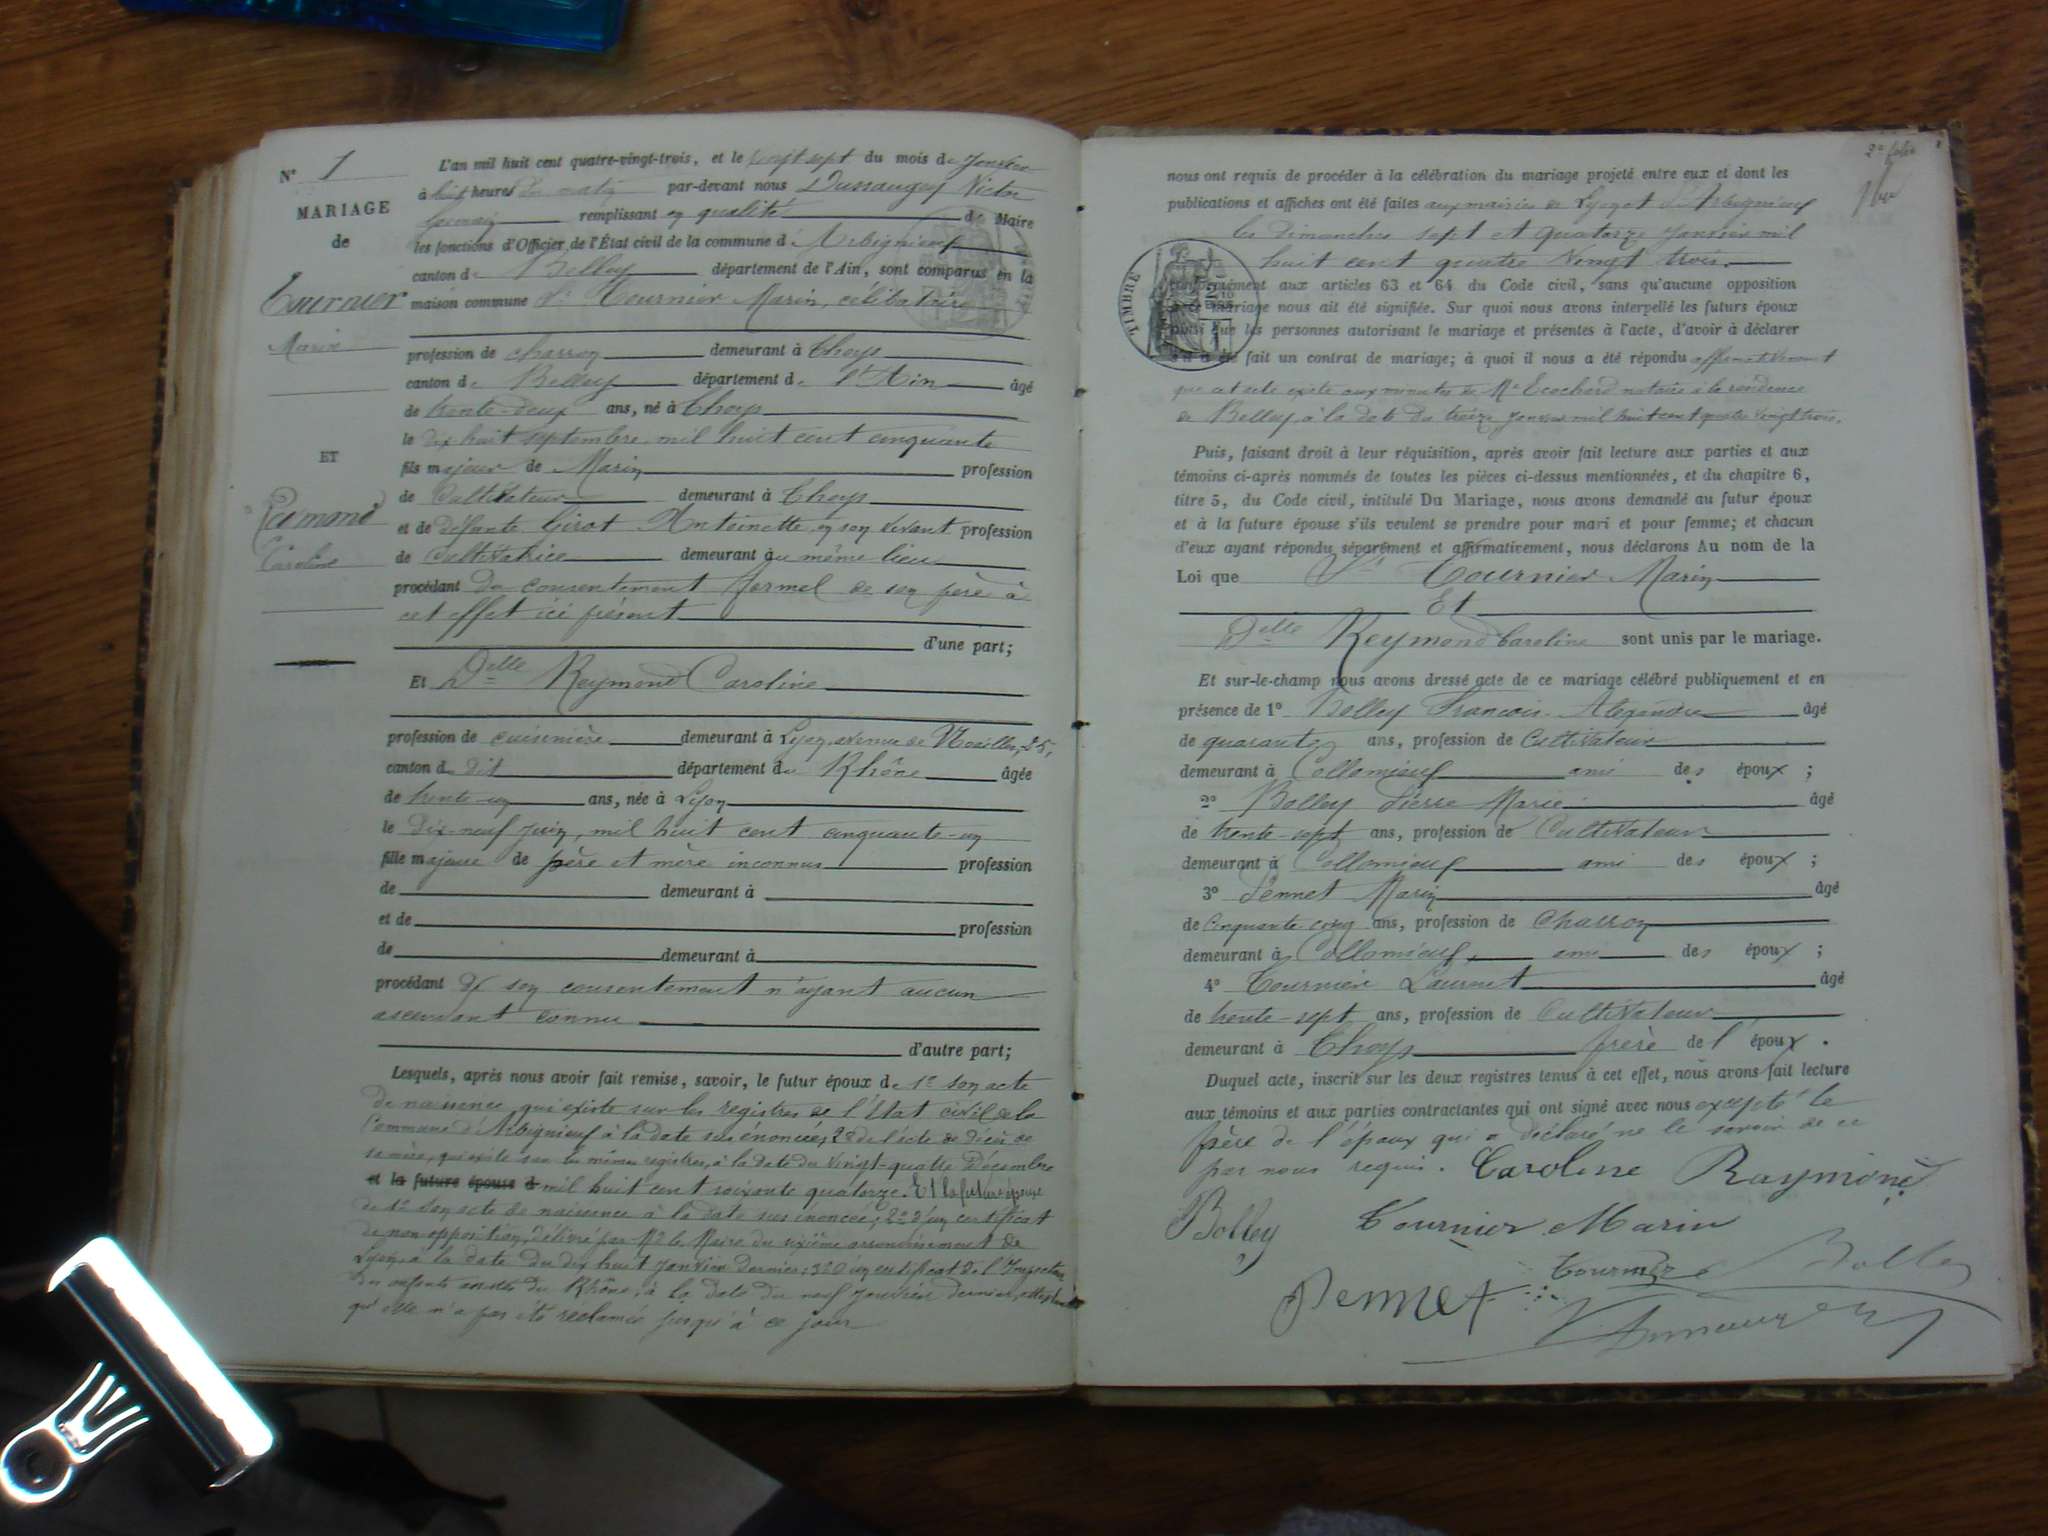 N° 1
MARIAGE
de
Tournier
Marin
ET
Reymond
Caroline
L'an mil huit cent quatre-vingt-trois, et le vingt sept du mois de Janvier
à huit heures du matin par-devant nous Dussaugey Victor
remplissant en qualité de Maire
les fonctions d'Officier de l'État civil de la commune d'Arbignieu
canton de Belley département de l'Ain, sont comparus en la
maison commune Sr Tournier Marin, célibataire
profession de charron demeurant à Thoys
canton de Belley département de l'Ain âgé
de trente-deux ans, né à Thoys
le dix huit septembre mil huit cent cinquante
fils majeur de Marin profession
de Cultivateur demeurant à Thoys
et de défunte Girot Antoinette en son vivant profession
de Cultivatrice demeurant au même lieu
procédant du consentement formel de son père à
cet effet ici présent
d'une part;
Et Delle Reymond Caroline
profession de cuisinière demeurant à Lyon, avenue de Noailles, 25,
canton du dit département du Rhône âgée
de trente-un ans, née à Lyon
le dix-neuf juin, mil huit cent cinquante-un
fille majeure de père et mère inconnus profession
de demeurant à
et de profession
de demeurant à
procédant de son consentement n'ayant aucun
ascendant connu
d'autre part;
Lesquels, après nous avoir fait remise, savoir, le futur époux de 1° son acte
de naissance, qui existe sur les registres de l'État civil de la
Commune d'Arbignieu à la date sus énoncée; 2° de l'acte de décès de
sa mère, qui existe sur les mêmes registres, à la date du vingt-quatre Décembre
et la future épouse d mil huit cent soixante quatorze. Et la future épouse
de 1° son acte de naissance à la date sus énoncée; 2° d'un certificat
de non opposition, délivré par Mr le Maire du sixième arrondissement de
Lyon, à la date du dix huit janvier dernier; 3° d'un certificat de l'Inspecteur
des enfants assistés du Rhône, à la date du neuf janvier dernier, attestant
qu'elle n'a pas été réclamée jusqu'à ce jour
2e folio
nous ont requis de procéder à la célébration du mariage projeté entre eux et dont les
publications et affiches ont été faites aux mairies de Lyon et d'Arbignieu
les dimanches sept et quatorze janvier mil
huit cent quatre vingt trois.
TIMBRE
conformément aux articles 63 et 64 du Code civil, sans qu'aucune opposition
à ce mariage nous ait été signifiée. Sur quoi nous avons interpellé les futurs époux
ainsi que les personnes autorisant le mariage et présentes à l'acte, d'avoir à déclarer
s'il a été fait un contrat de mariage; à quoi il nous a été répondu affirmativement
que cet acte existe aux minutes de Me Ecochard notaire à la résidence
de Belley, à la date du treize janvier mil huit cent quatre vingt trois.
Puis, faisant droit à leur réquisition, après avoir fait lecture aux parties et aux
témoins ci-après nommés de toutes les pièces ci-dessus mentionnées, et du chapitre 6,
titre 5, du Code civil, intitulé Du Mariage, nous avons demandé au futur époux
et à la future épouse s'ils veulent se prendre pour mari et pour femme; et chacun
d'eux ayant répondu séparément et affirmativement, nous déclarons Au nom de la
Loi que Sr Tournier Marin
Et
Delle Reymond Caroline sont unis par le mariage.
Et sur-le-champ nous avons dressé acte de ce mariage célébré publiquement et en
présence de 1° Bolley François-Alexandre âgé
de quarante ans, profession de Cultivateur
demeurant à Collomieu ami des époux ;
2° Bolley Pierre Marie âgé
de trente-sept ans, profession de Cultivateur
demeurant à Collomieu ami des époux ;
3° Pennet Marin âgé
de Cinquante cinq ans, profession de Charron
demeurant à Collomieu, ami des époux ;
4° Tournier Laurent âgé
de trente-sept ans, profession de Cultivateur
demeurant à Thoys frère de l'époux .
Duquel acte, inscrit sur les deux registres tenus à cet effet, nous avons fait lecture
aux témoins et aux parties contractantes qui ont signé avec nous excepté le
père de l'époux qui a déclaré ne le savoir de ce
par nous requis. Caroline Raymond
Bolley Tournier Marin
Tournier Bolley
Pennet